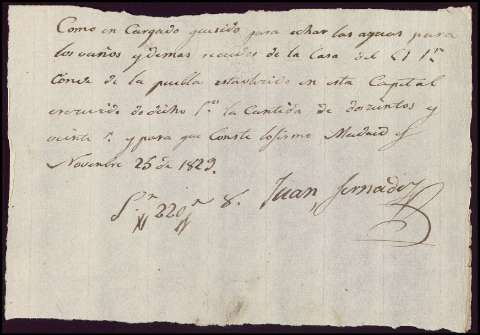 Como en Cargado que sido para echar las aguas para
los vaños y demas de la Casa del
Conde de la puebla establecido en esta Capital
de dicho Sor la Cantida de doscintos y
veinte rs y para que Conste lo firmo Madrid
Novienbre 25 de 1829.
Son 220 rn Juan Fernadez